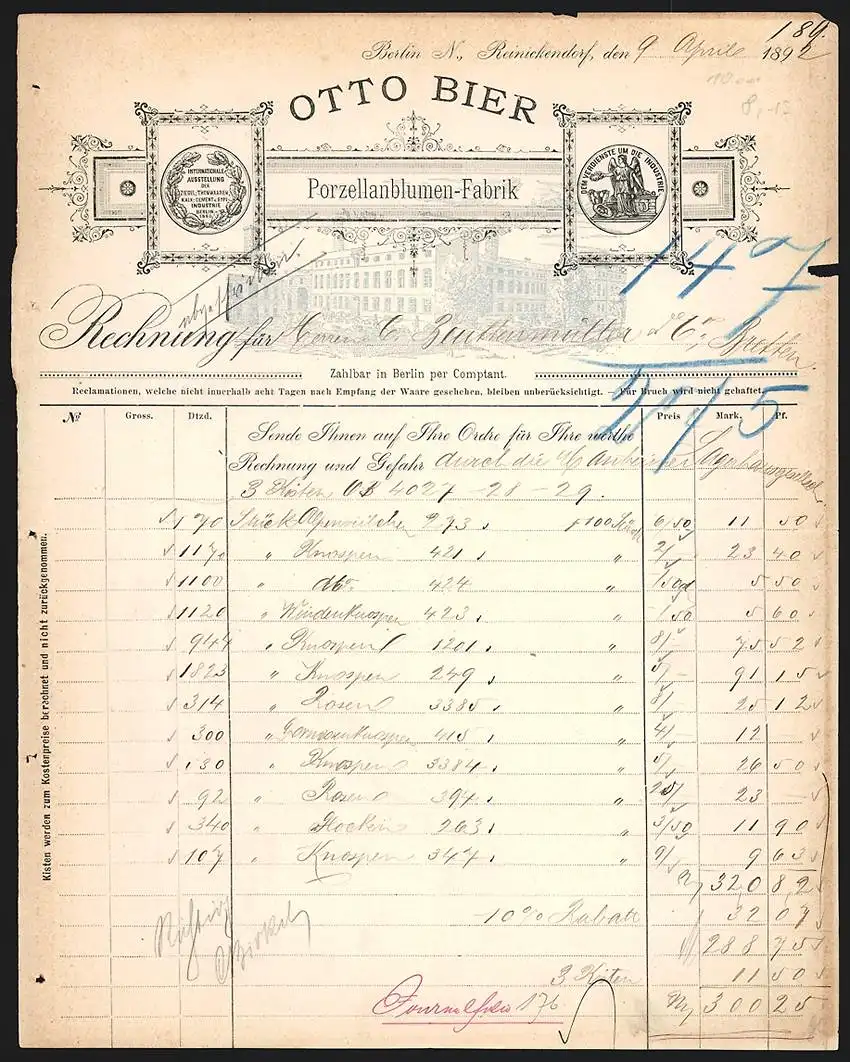 189.
Berlin N., Reinickendorf, den 9 April 1892
OTTO BIER
INTERNATIONALE AUSSTELLUNG DER ZIEGEL-, THONWAAREN, KALK-, CEMENT- u. GYPS- INDUSTRIE BERLIN
Porzellanblumen-Fabrik
DEM VERDIENSTE UM DIE INDUSTRIE
147
Rechnung für Herren C. Beuttenmüller & Co., Bretten.
Zahlbar in Berlin per Comptant.
Reclamationen, welche nicht innerhalb acht Tagen nach Empfang der Waare geschehen, bleiben unberücksichtigt. Für Bruch wird nicht gehaftet.
175
No Gross. Dtzd. Preis Mark. Pf.
Sende Ihnen auf Ihre Ordre für Ihre werthe
Rechnung und Gefahr durch die Lagerhausgesellsch
3 Kisten OB 4027 - 28 - 29.
170 Stück 293 100 Stück 6/50 11 50
1170 " Knospen 421 " 2/ 23 40
1100 " dto. 424 " /50 5 50
1120 " Windenknospen 423 " /50 5 60
944 " Knospen 1201 " 8/ 75 52
1823 " Knospen 249 " 5/ 91 15
314 " Rosen 3385 " 8/ 25 12
300 " 415 " 4/ 12 -
530 " Knospen 3384 " 5/ 26 50
92 " Rosen 394 " 25/ 23 -
340 " Glocken 263 " 3/50 11 90
107 " Knospen 347 " 9/ 9 63
320 82
10% Rabatt 32 07
288 75
3 Kisten 11 50
300 25
Richtig
176
Kisten werden zum Kostenpreise berechnet und nicht zurückgenommen.